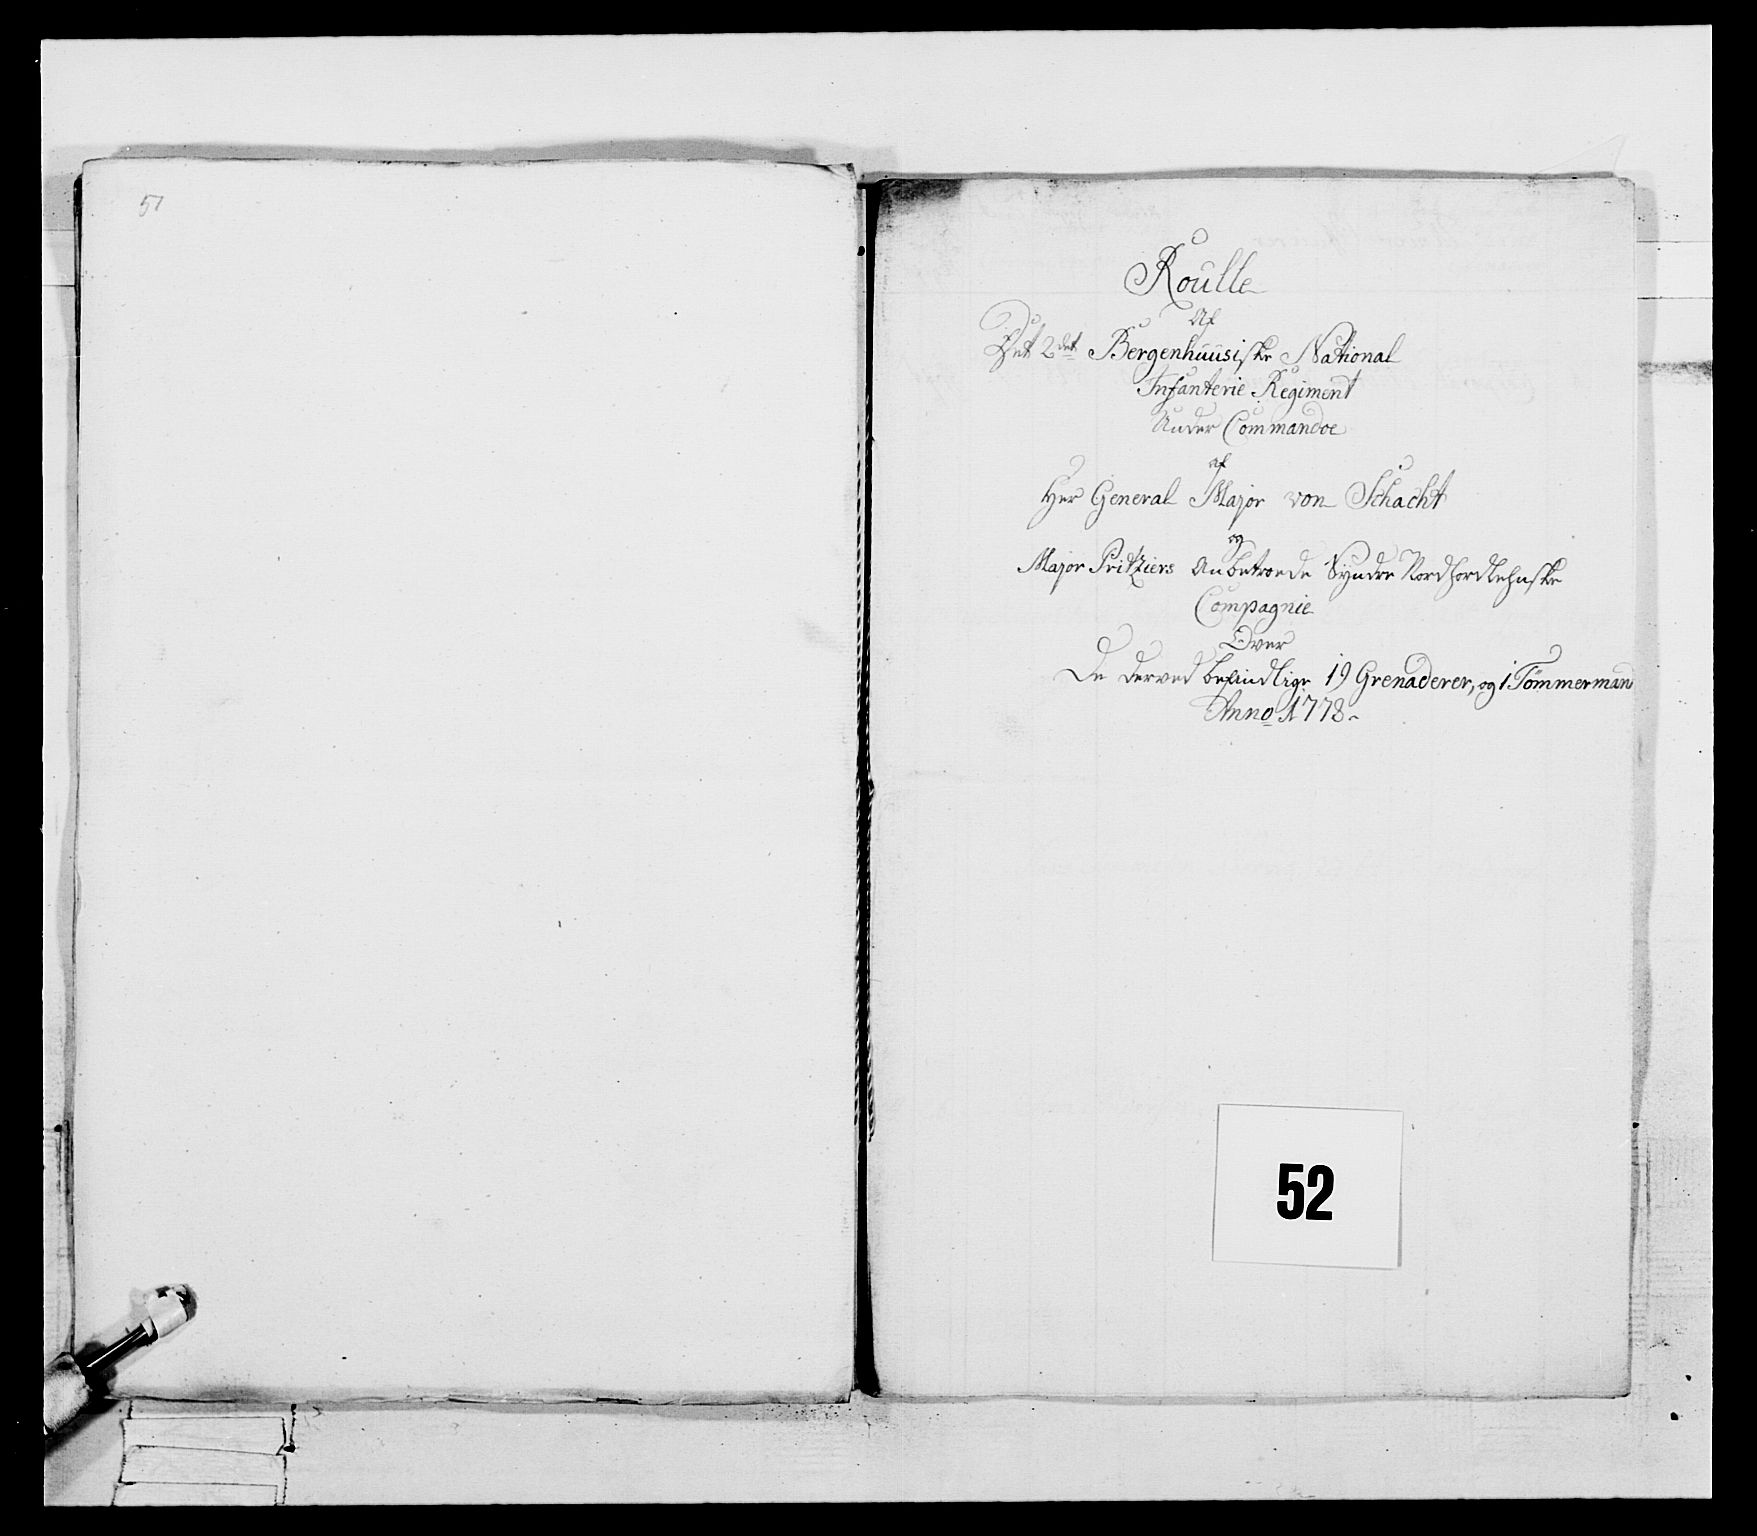 51
Roulle
Af
Det 2det Bergenhuusiske National
Infanterie Regiment
Under Commandoe
af
Herr General Major von Schacht
og
Major Pritziers Anbetroede Syndre Nordhordlehnske
Compagnie
Over
De derved befindlige 19 Grenaderer, og 1 Tömmermand
Anno 1778
52